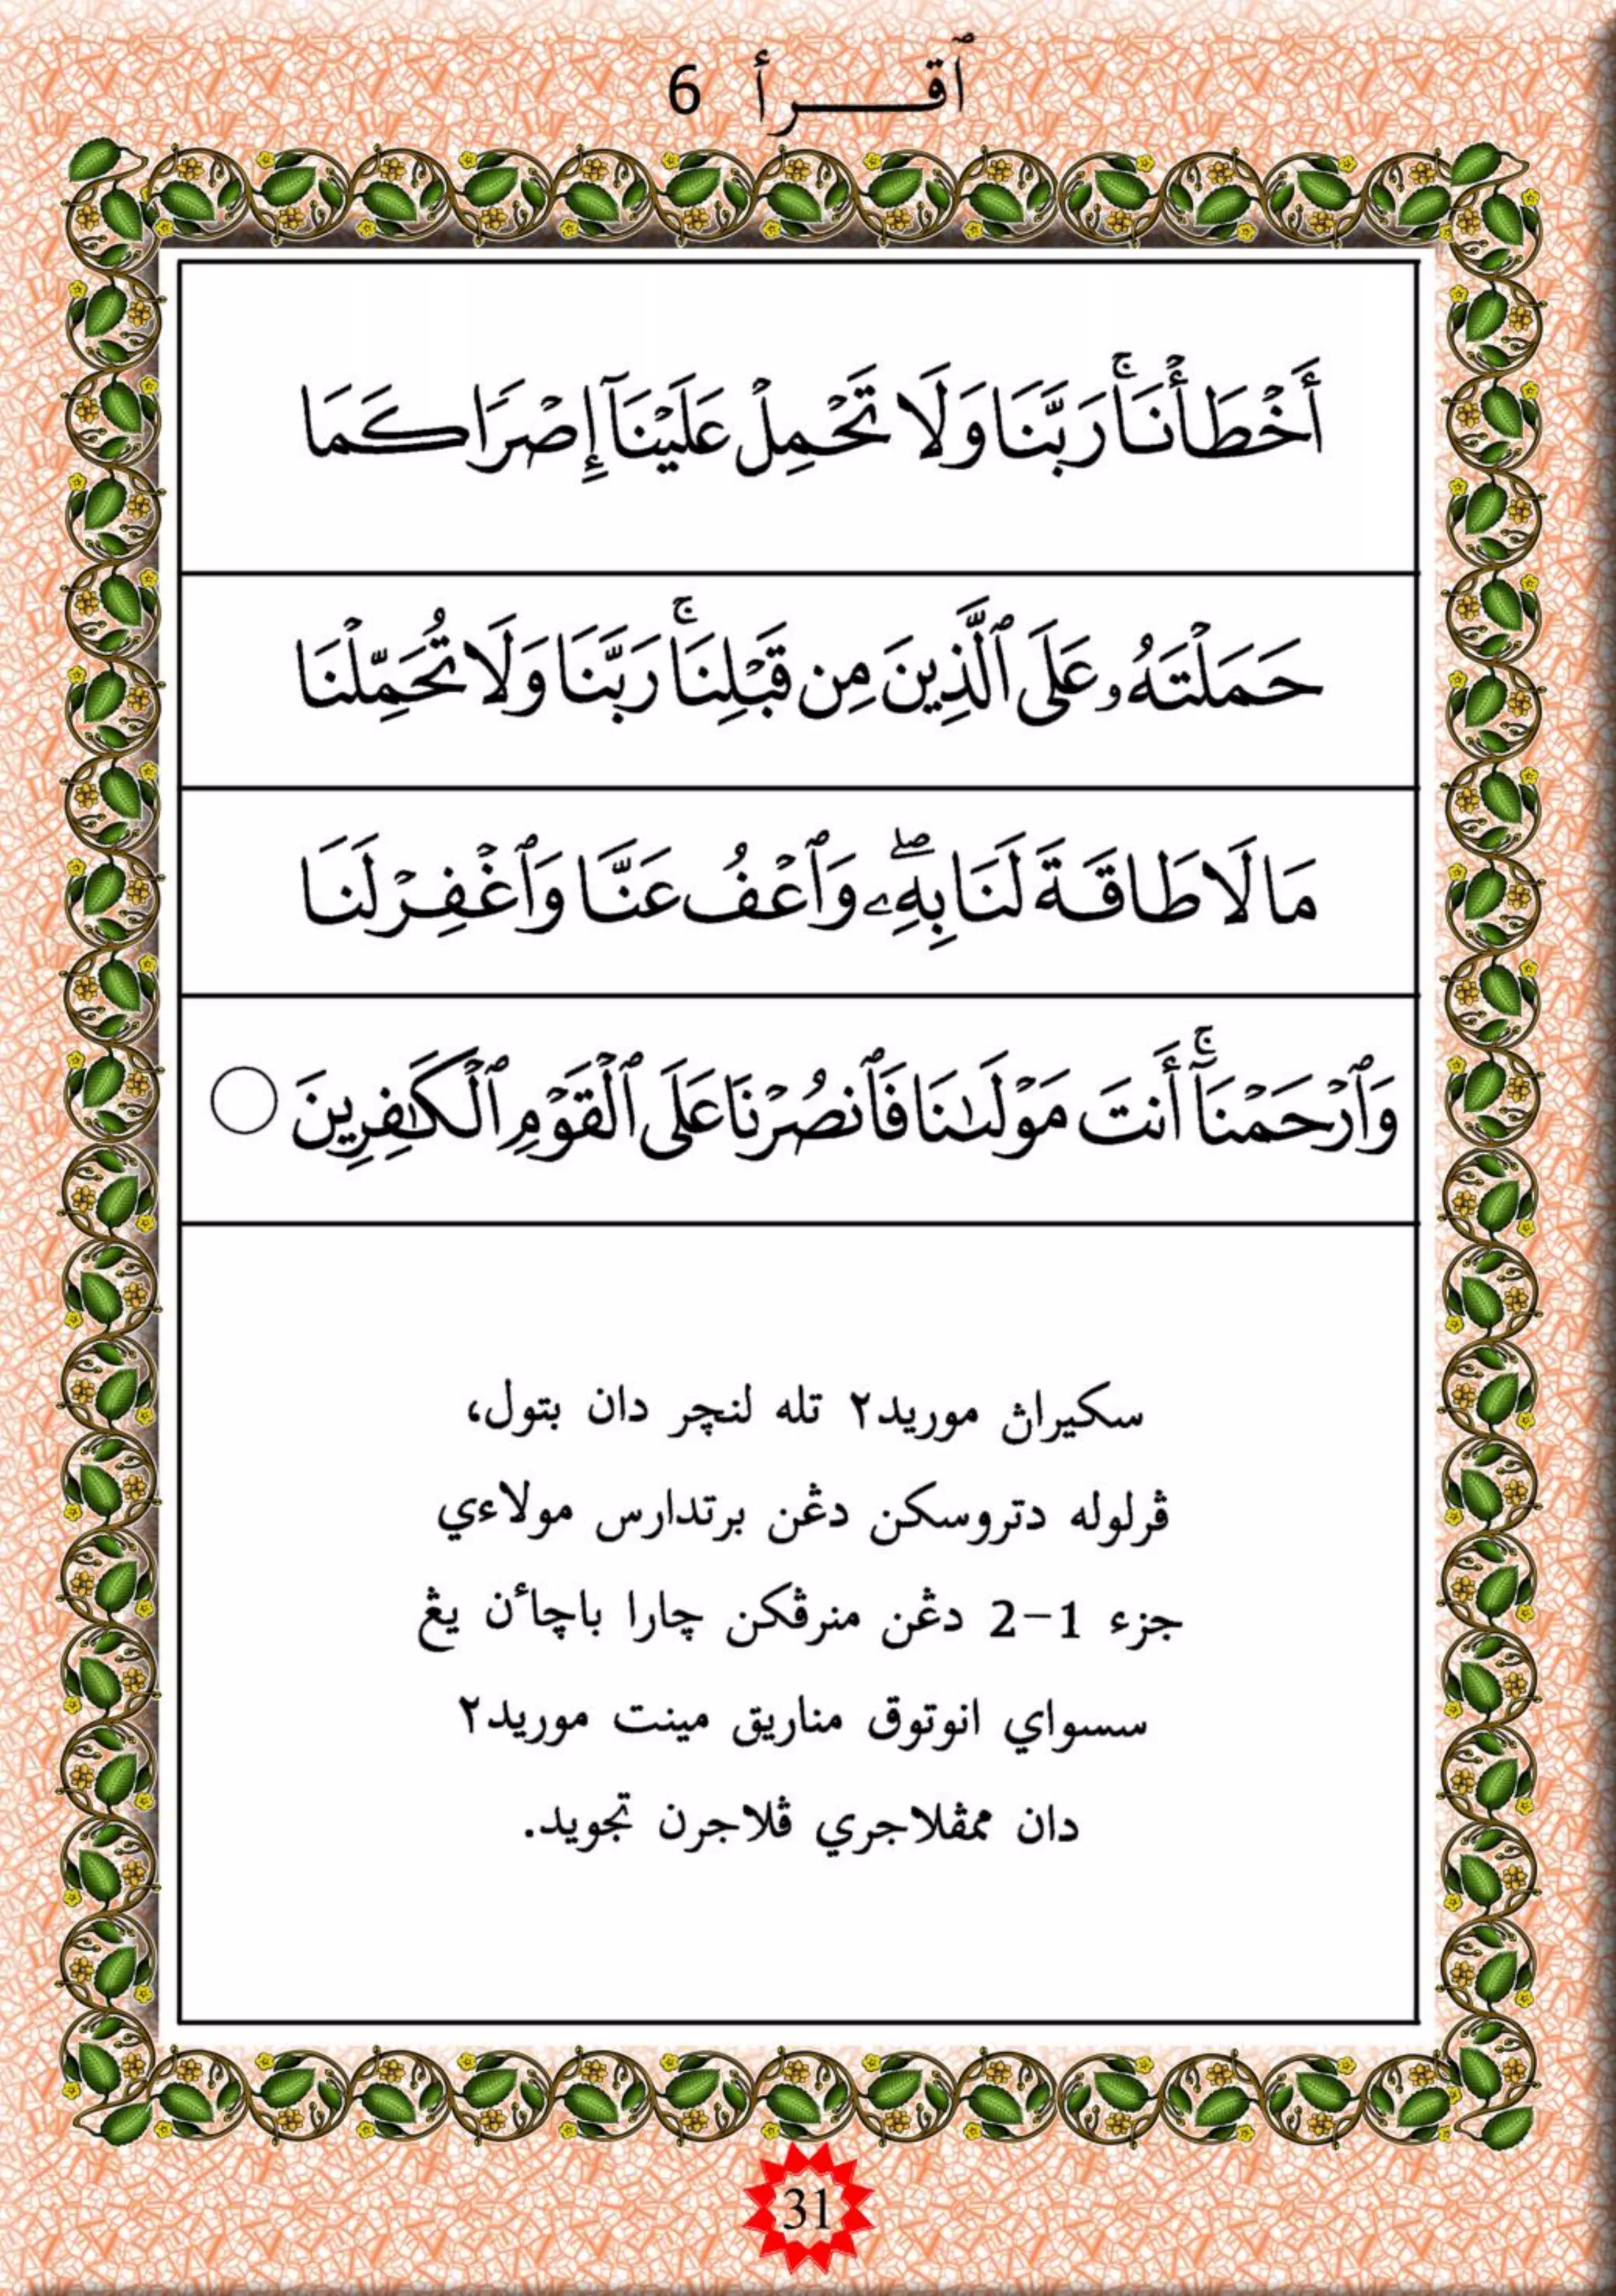 ٱقـــرأ 6
أَخْطَأْنَاۚ رَبَّنَا وَلَا تَحْمِلْ عَلَيْنَآ إِصْرًا كَمَا
حَمَلْتَهُۥ عَلَى ٱلَّذِينَ مِن قَبْلِنَاۚ رَبَّنَا وَلَا تُحَمِّلْنَا
مَا لَا طَاقَةَ لَنَا بِهِۦۖ وَٱعْفُ عَنَّا وَٱغْفِرْ لَنَا
وَٱرْحَمْنَآۚ أَنتَ مَوْلَىٰنَا فَٱنصُرْنَا عَلَى ٱلْقَوْمِ ٱلْكَٰفِرِينَ ○
سکيراڽ موريد٢ تله لنچر دان بتول،
ڤرلوله دتروسکن دڠن برتدارس مولاءي
جزء 1–2 دڠن منرڤکن چارا باچاٴن يڠ
سسواي انوتوق مناريق مينت موريد٢
دان ممڤلاجري ڤلاجرن تجويد.
31